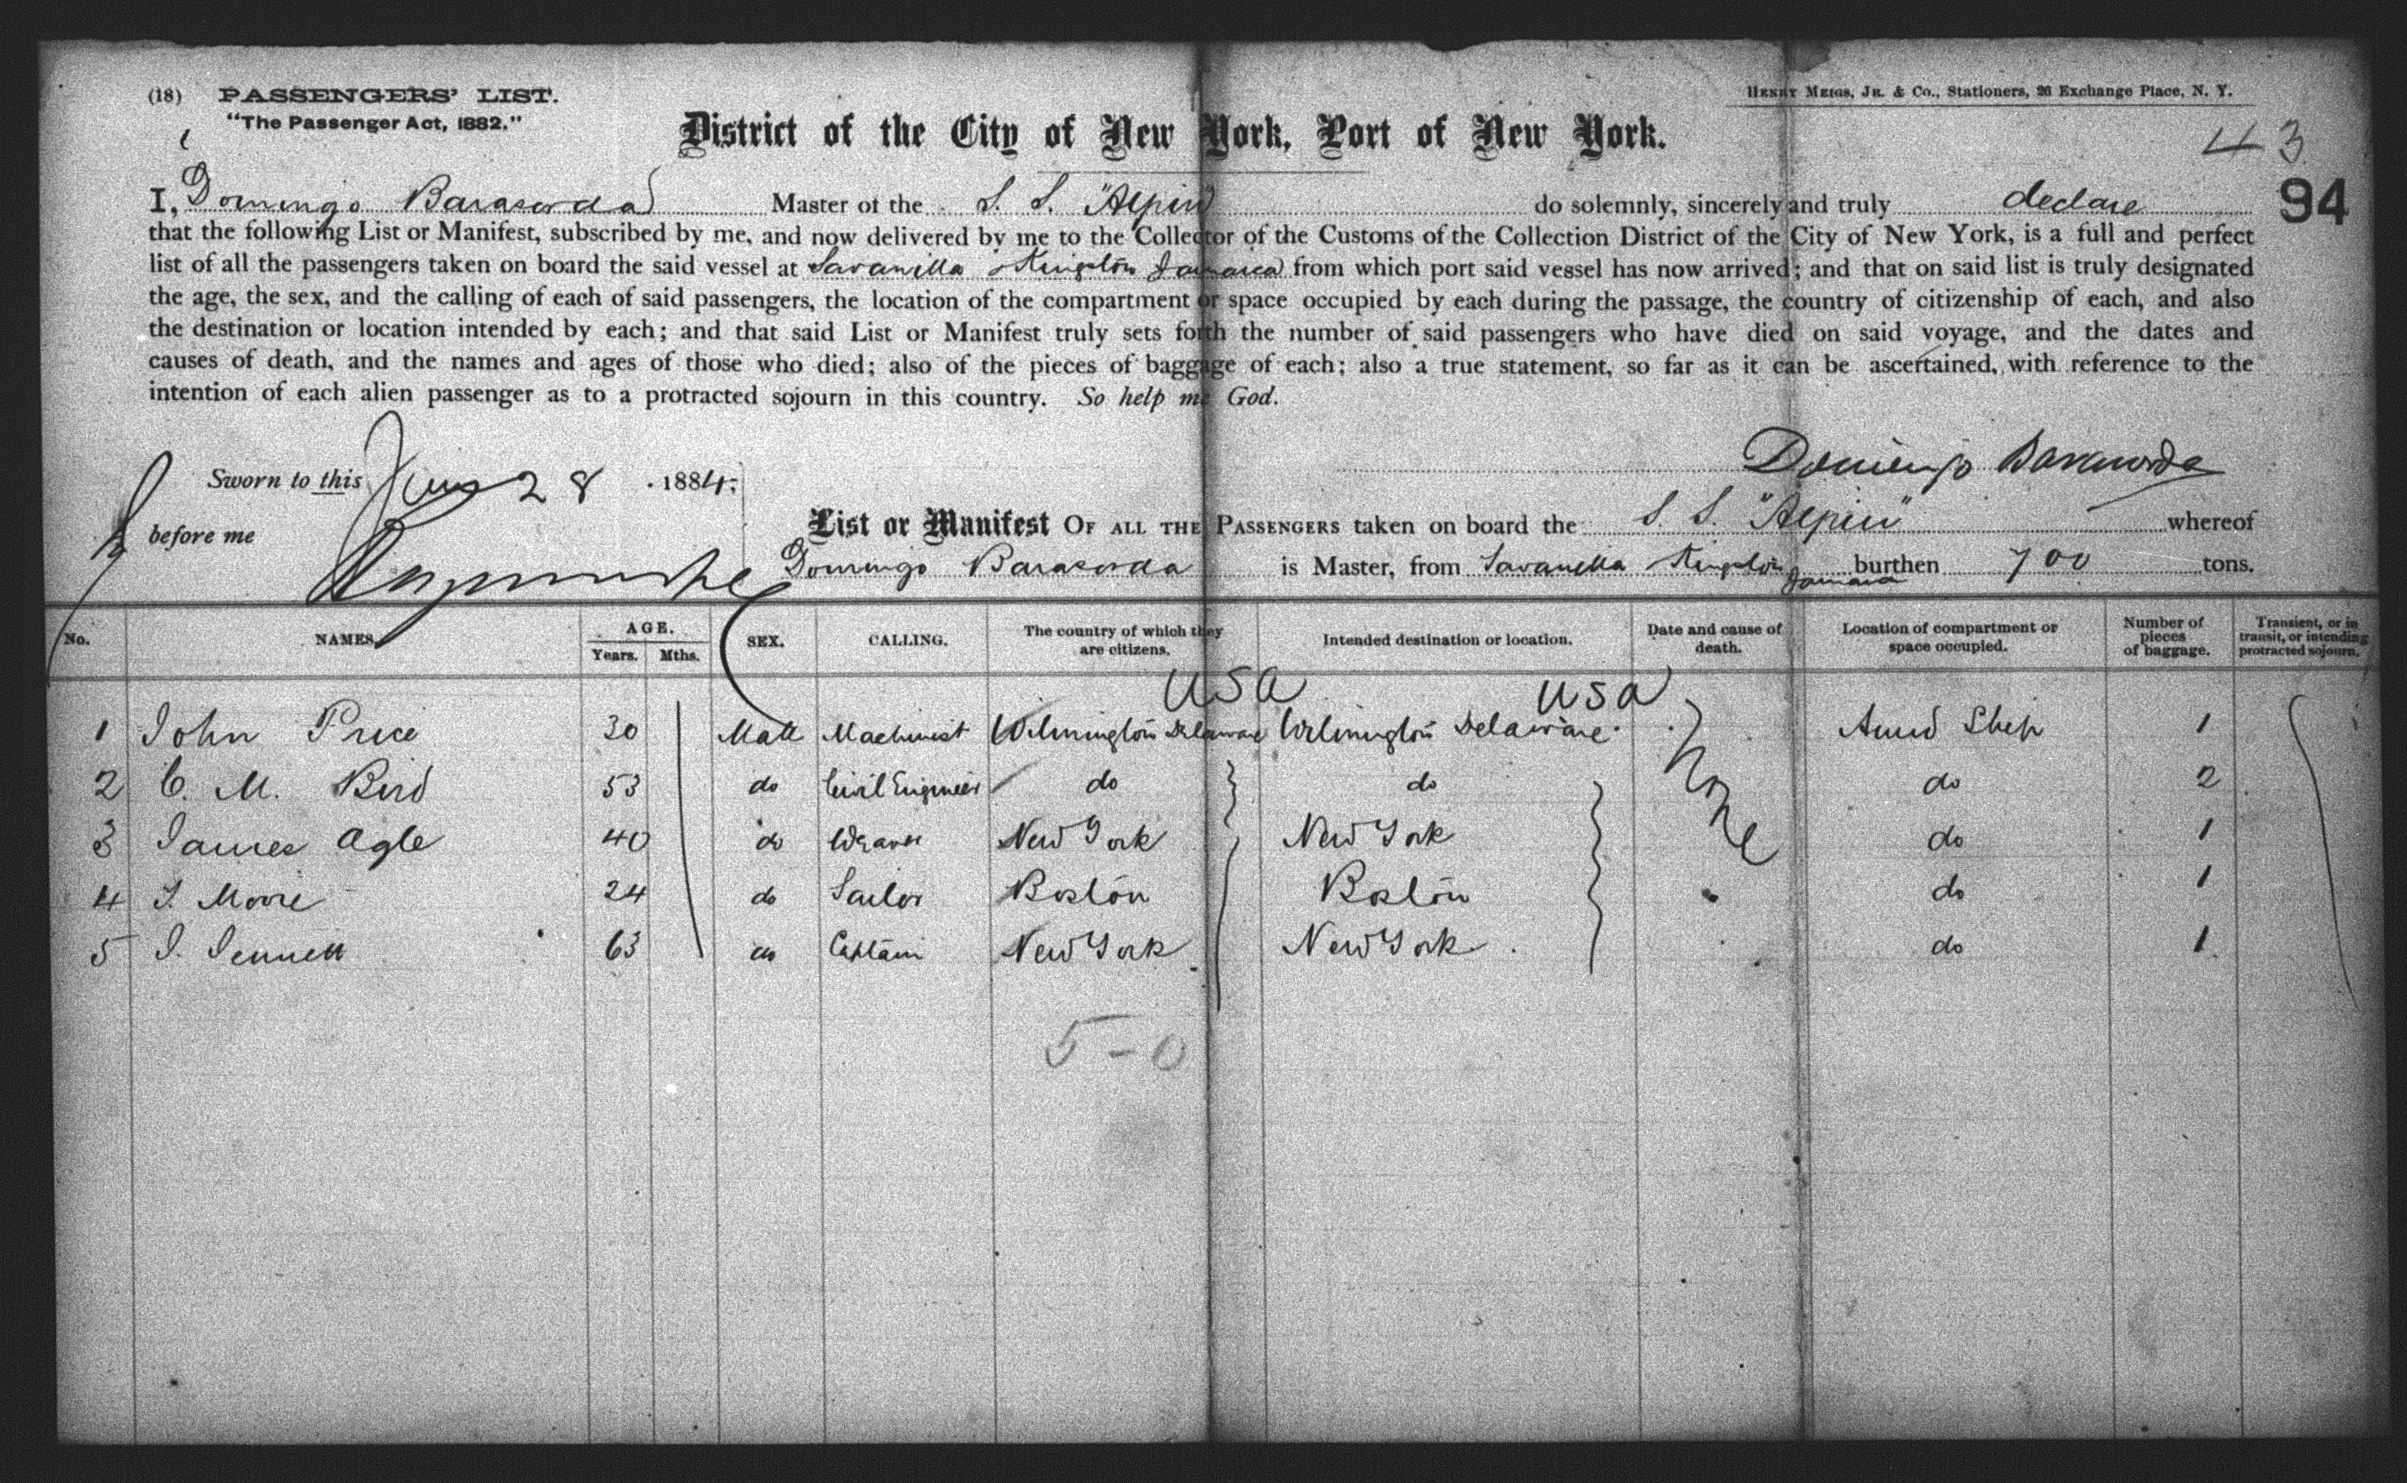 (18) PASSENGERS' LIST. HENRY MEIGS, JR. & CO., Stationers, 26 Exchange Place, N. Y.
"The Passenger Act, 1882."
District of the City of New York, Port of New York.
43
94
I, Domingo Barasorda Master of the S. S. "Alpin" do solemnly, sincerely and truly declare
that the following List or Manifest, subscribed by me, and now delivered by me to the Collector of the Customs of the Collection District of the City of New York, is a full and perfect
list of all the passengers taken on board the said vessel at Savanilla Kingston Jamaica from which port said vessel has now arrived; and that on said list is truly designated
the age, the sex, and the calling of each of said passengers, the location of the compartment or space occupied by each during the passage, the country of citizenship of each, and also
the destination or location intended by each; and that said List or Manifest truly sets forth the number of said passengers who have died on said voyage, and the dates and
causes of death, and the names and ages of those who died; also of the pieces of baggage of each; also a true statement, so far as it can be ascertained, with reference to the
intention of each alien passenger as to a protracted sojourn in this country. So help me God.
Domingo Barasorda
Sworn to this 28 1884;
before me
List or Manifest OF ALL THE PASSENGERS taken on board the S. S. "Alpin" whereof
Domingo Barasorda is Master, from Savanilla Kingston Jamaica burthen 700 tons.
No. NAMES. AGE. Years. Mths. SEX. CALLING. The country of which they are citizens. Intended destination or location. Date and cause of death. Location of compartment or space occupied. Number of pieces of baggage. Transient, or in transit, or intending protracted sojourn.
USA USA
1 John Price 30 Male Machinist Wilmington Delaware Wilmington Delaware. None Ship 1
2 C. M. Bird 53 do Civil Engineer do do do 2
3 James Agle 40 do New York New York do 1
4 J. Moore 24 do Sailor Boston Boston do 1
5 J. Jennett 63 do Captain New York New York do 1
5-0